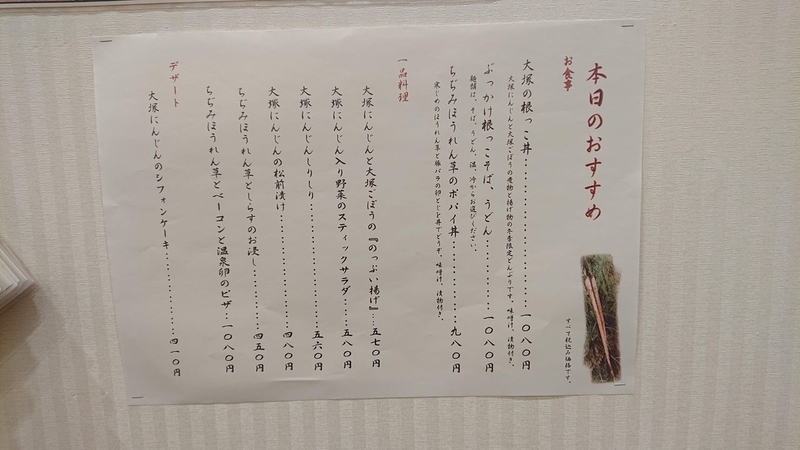 本日のおすすめ
すべて税込み価格です。
お食事
大塚の根っこ丼‥‥‥‥‥‥‥‥‥一〇八〇円
大塚にんじんと大塚ごぼうの煮物と揚げ物の冬季限定どんぶりです。味噌汁、漬物付き。
ぶっかけ根っこそば、うどん‥‥‥‥一〇八〇円
麺類は、そば、うどん、温、冷からお選びください。
ちぢみほうれん草のポパイ丼‥‥‥‥九八〇円
寒じめのほうれん草と豚バラの卵とじを丼でどうぞ。味噌汁、漬物付き。
一品料理
大塚にんじんと大塚ごぼうの『のっぷい揚げ』‥五七〇円
大塚にんじん入り野菜のスティックサラダ‥‥五八〇円
大塚にんじんしりしり‥‥‥‥‥‥五六〇円
大塚にんじんの松前漬け‥‥‥‥‥‥四八〇円
ちぢみほうれん草としらすのお浸し‥‥‥四五〇円
ちぢみほうれん草とベーコンと温泉卵のピザ‥一〇八〇円
デザート
大塚にんじんのシフォンケーキ‥‥‥‥四一〇円